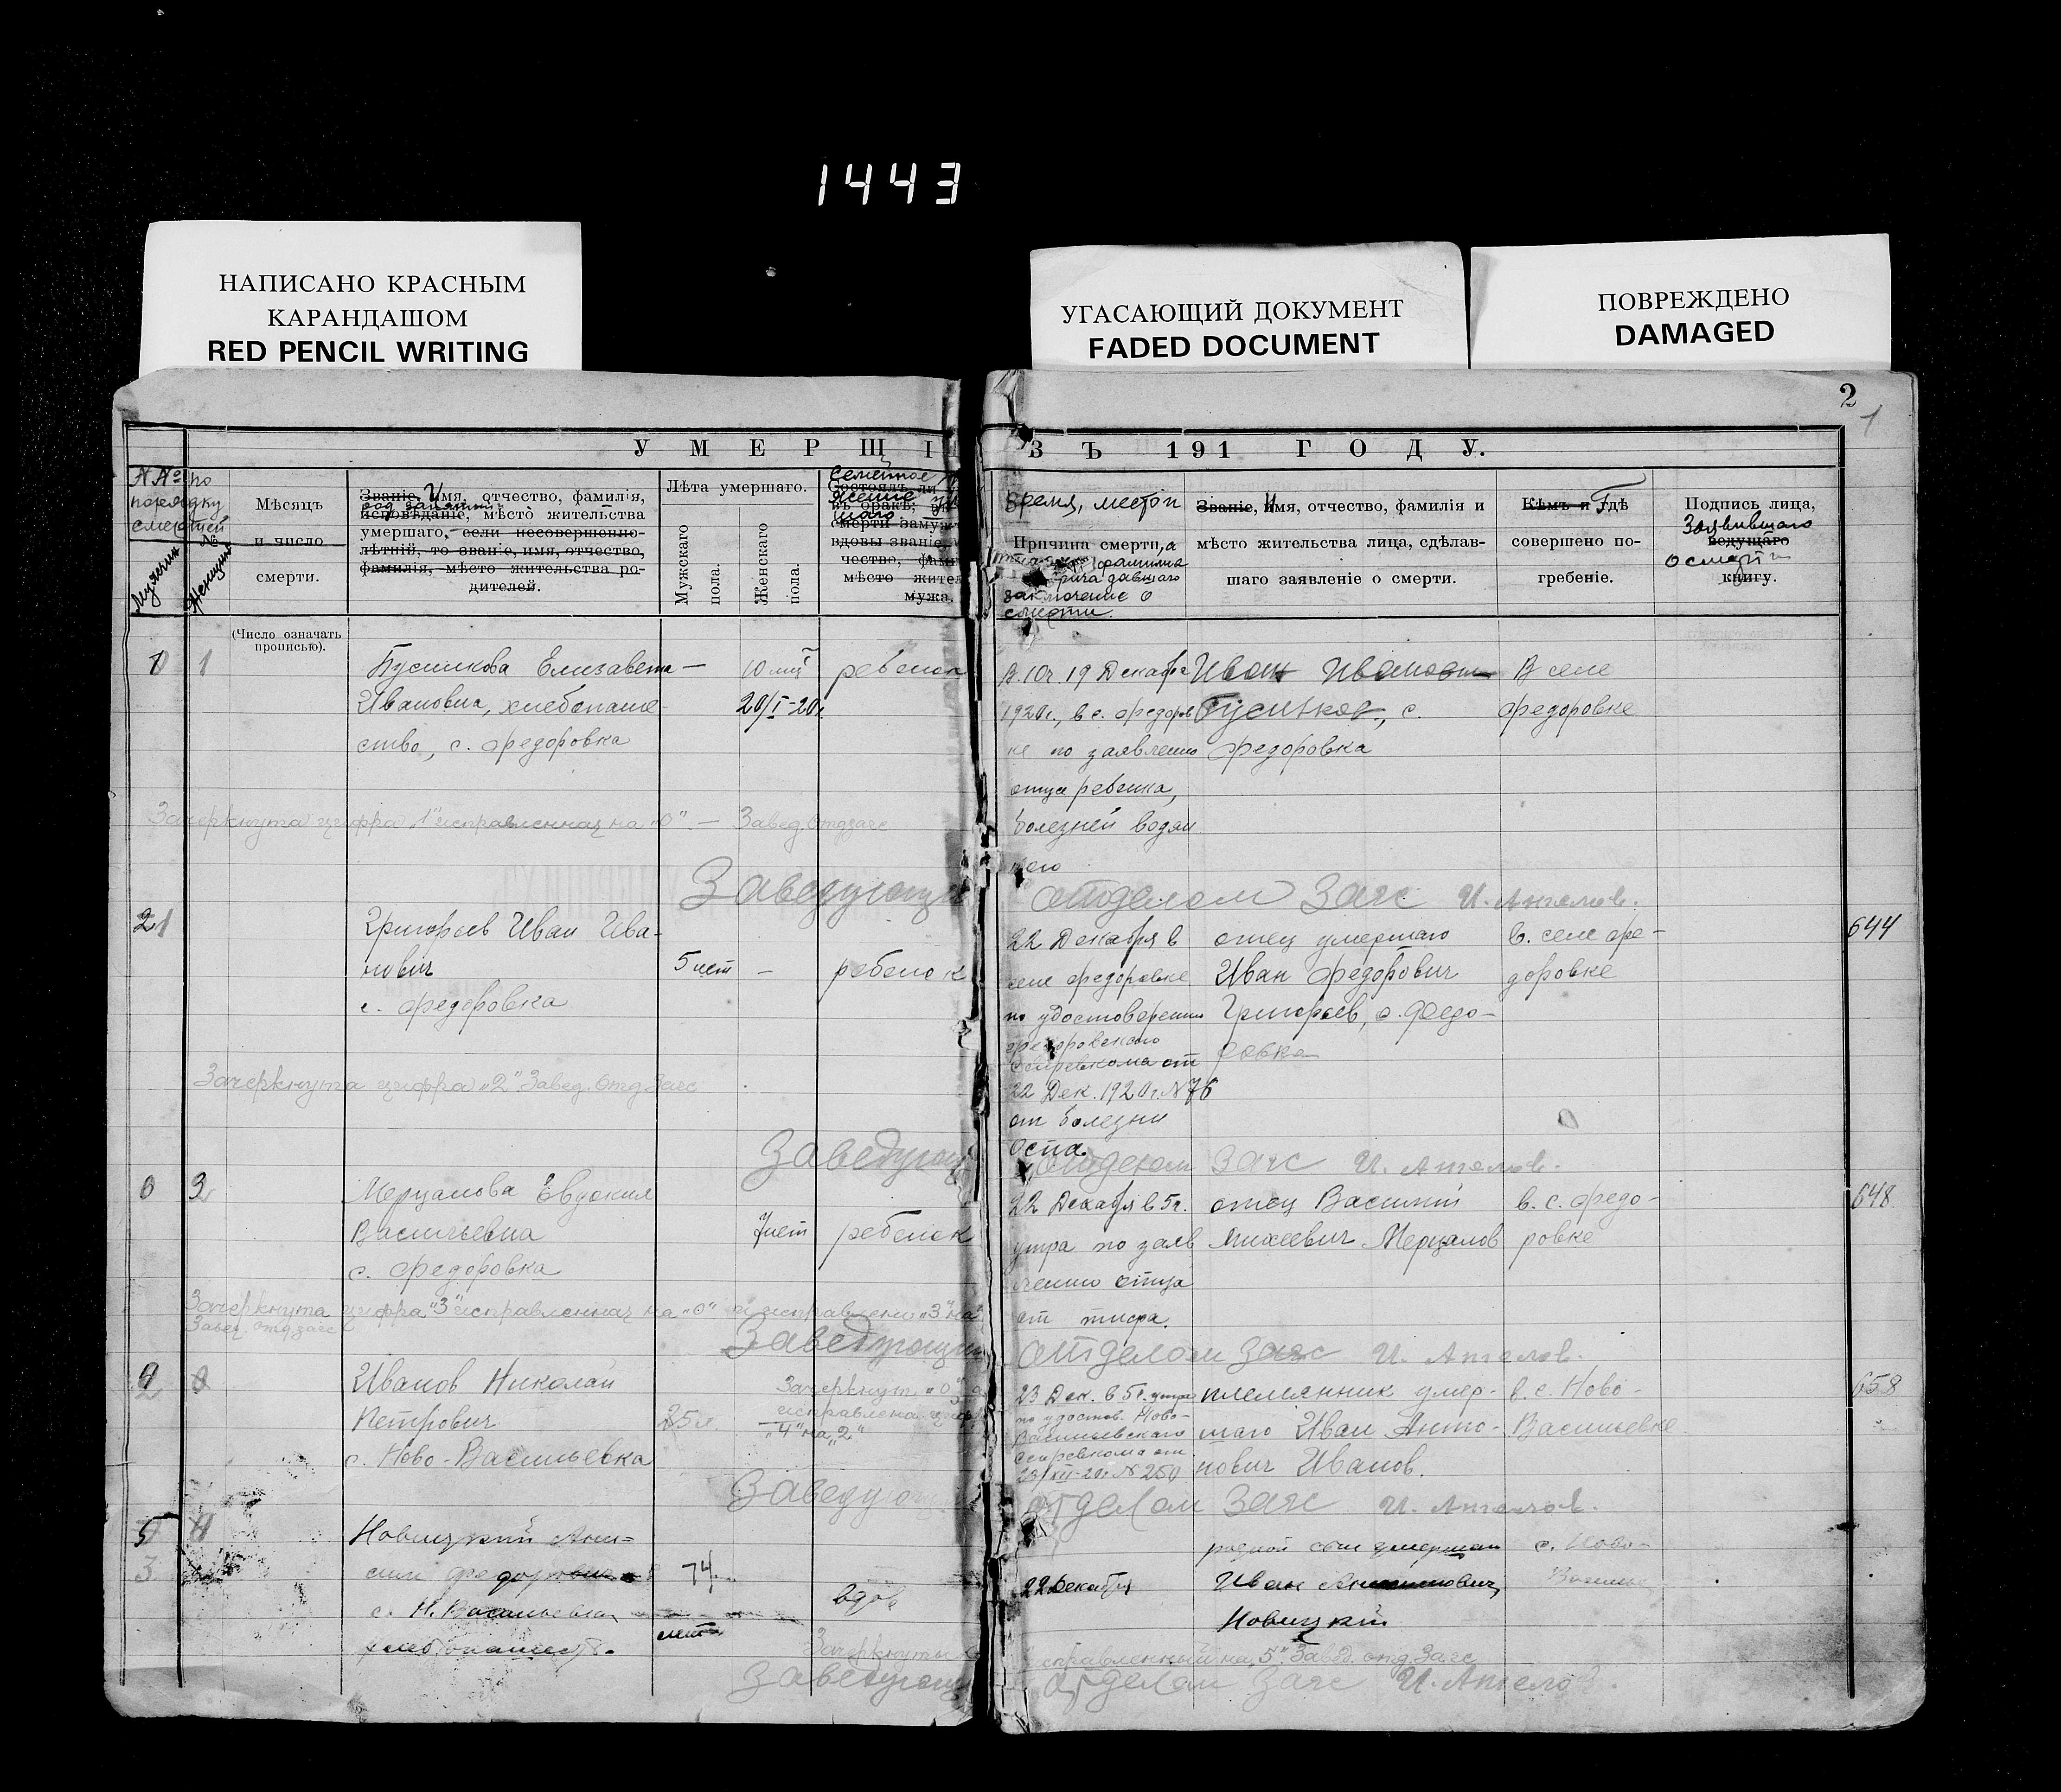 1443
НАПИСАНО КРАСНЫМ
КАРАНДАШОМ
RED PENCIL WRITING
УГАСАЮЩИЙ ДОКУМЕНТ
FADED DOCUMENT
ПОВРЕЖДЕНО
DAMAGED
2
1
У М Е Р Ш I
З Ъ 191 Г О Д У.
№№ по
порядку
смертей
Мужчин
№ Женщин
Мѣсяцъ
и число
смерти.
(Число означать
прописью).
Званіе, Имя, отчество, фамилія,
род занятий
исповѣданіе, мѣсто жительства
умершаго, если несовершенно-
лѣтній, то званіе, имя, отчество,
фамилія, мѣсто жительства ро-
дителей.
Лѣта умершаго.
Мужскаго
пола.
Женскаго
пола.
Семейное
Состоялъ ли
въ бракѣ;
смерти замуж
вдовы званіе,
чество, фам
мѣсто жител
мужа.
Время, место и
Причина смерти, а
фамилия
врача давшаго
заключение о
смерти.
Званіе, Имя, отчество, фамилія и
мѣсто жительства лица, сдѣлав-
шаго заявленіе о смерти.
Кѣмъ и Гдѣ
совершено по-
гребеніе.
Подпись лица,
Заявившаго
ведущаго
о смерти
книгу.
0 1
Бусилкова Елизавета —
Ивановна, хлебопаше-
ство, с. Федоровка
10 мц
20/I-20г.
ребенок
В 10ч. 19 Декабря
1920г., в с. Федоров
ке по заявлению
отца ребенка,
болезней водян
кою
Иван Иванович
Бусилков, с.
Федоровка
В селе
Федоровке
Зачеркнута цифра "1" исправленная на "0". — Завед. Отдзагс
Заведующи
отделом Загс И. Ангелов.
21
Григорьев Иван Ива-
нович
с. Федоровка
5 лет —
ребенок
22 Декабря в
селе Федоровке
по удостоверению
Федоровского
Сельревкома от
22 Дек. 1920г. №76
от болезни
Оспа.
отец умершаго
Иван Федорович
Григорьев, с. Федо-
ровка
в. селе Фе-
доровке
644
Зачеркнута цифра "2" Завед. Отд Загс
Заведующи
отделом Загс И. Ангелов.
0 2
Мерцалова Евдокия
Васильевна
с. Федоровка
7 лет
ребенок
22 Декабря в 5ч.
утра по заяв
лению отца
от тифа.
отец Василий
Михеевич Мерцалов
в. с. Федо-
ровке
648
Зачеркнута цифра "3" исправленная на "0" и исправлены "3" на
Завед. отдзагс
Заведующи
отделом Загс И. Ангелов.
4 0
2
Иванов Николай
Петрович
с. Ново-Васильевка
25 л.
Зачеркнут "0" а
исправлена цифра
"4" на "2"
23 Дек. в 5ч. утра
по удостов. Ново-
Васильевского
Сельревкома от
23/XII-20г. №250
племянник умер-
шаго Иван Анто-
нович Иванов.
в. с. Ново-
Васильевке
658
Заведую
отделом Загс И. Ангелов.
5
3
Новицкий Ани-
сим Федорович
с. Н. Васильевка
хлебопашеств.
74
лет
вдов
22 Декабря
родной сын умершаго
Иван Анисимович
Новицкий
с. Ново-
Василье
исправленный на "5" Завед. отд. Загс
Заведующи
отделом Загс И. Ангелов.